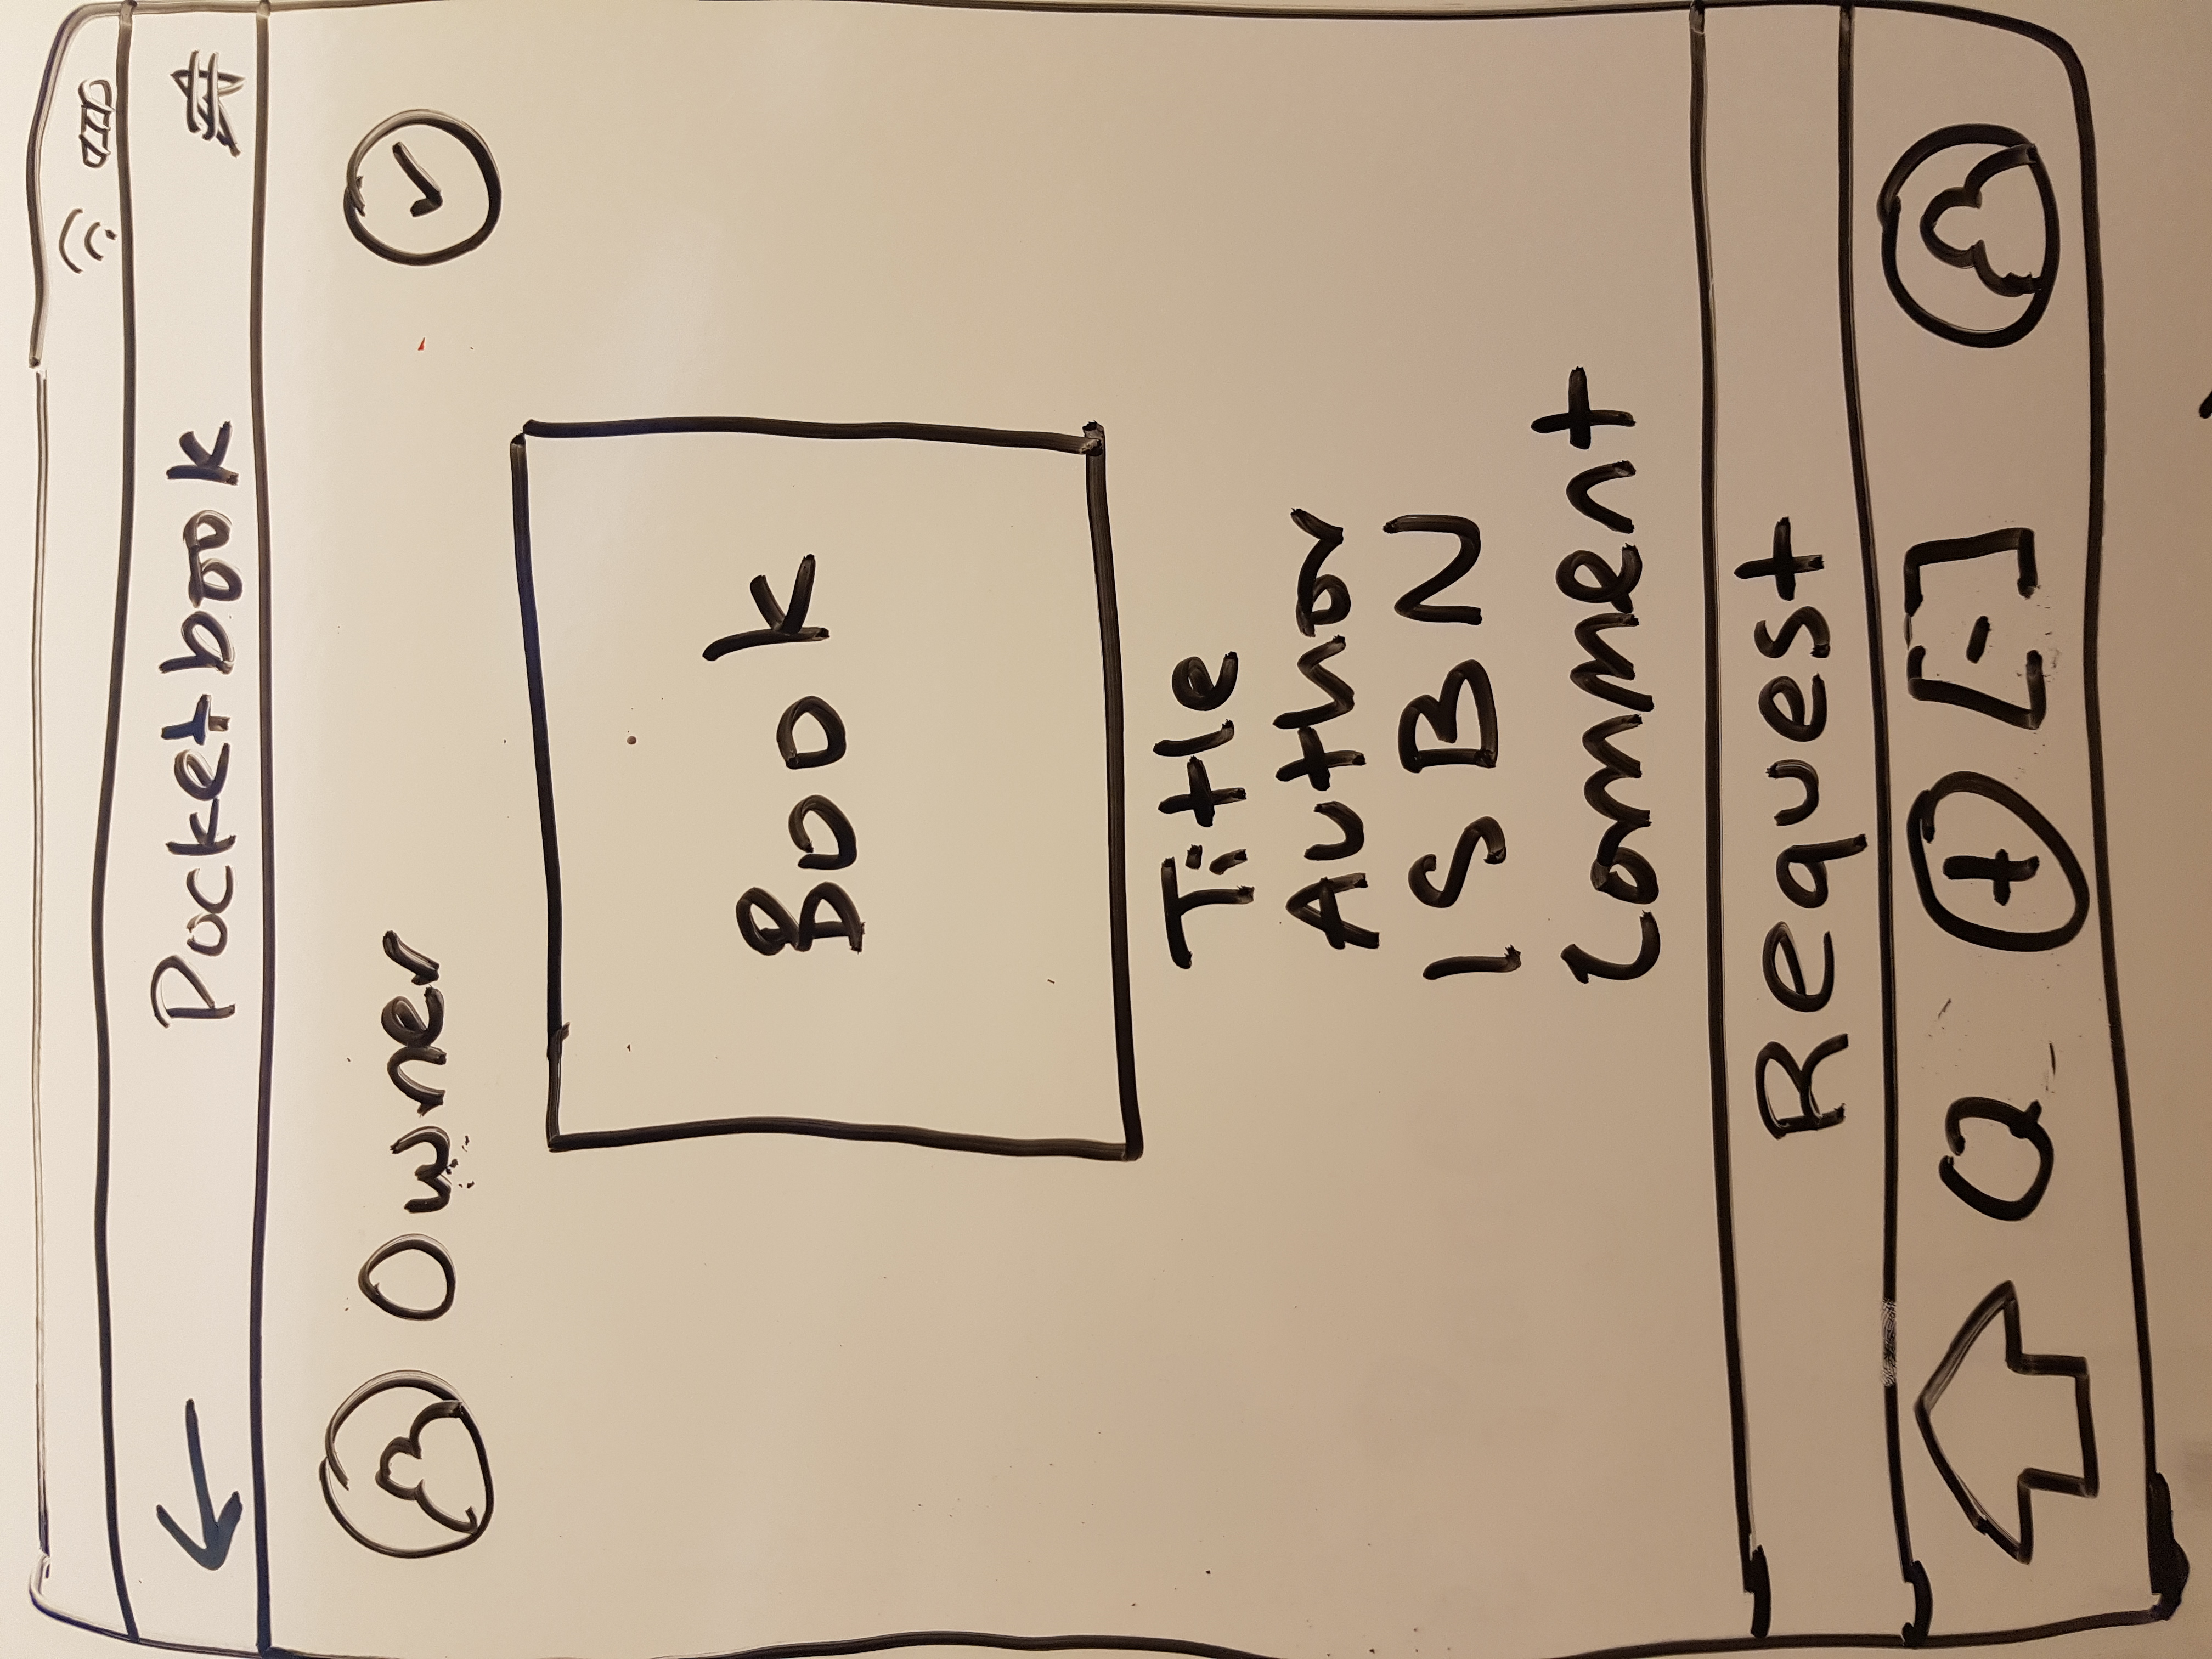 Pocketbook
Owner
Book
Title
Author
ISBN
Comment
Request